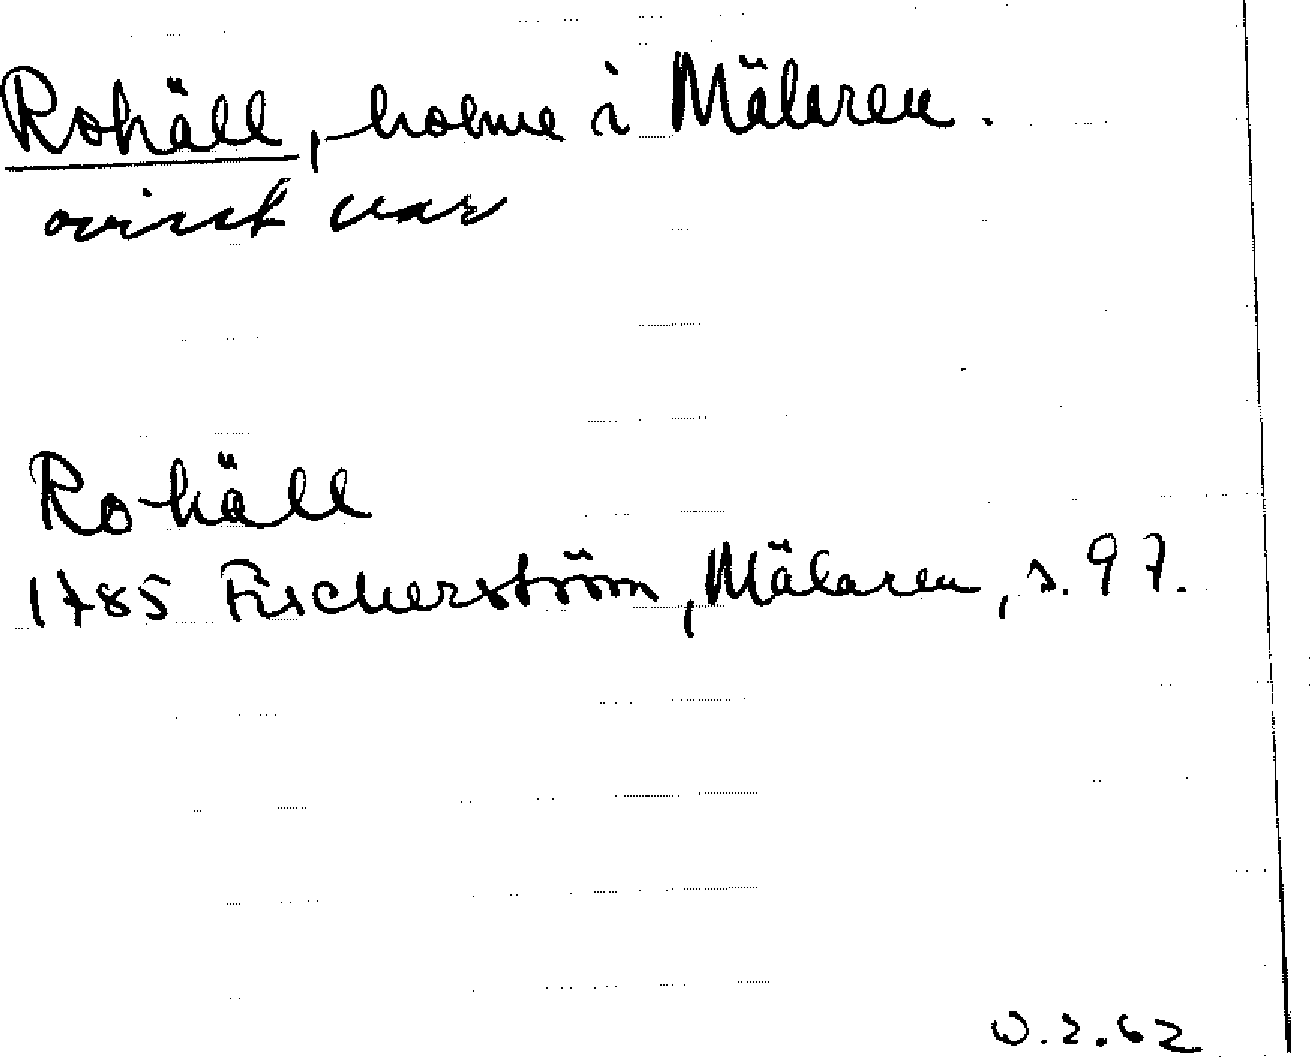 Rohäll, holme i Mälaren.
ovisst var
Rohäll
1785 Fischerström, Mälaren, s. 97.
W.2.62